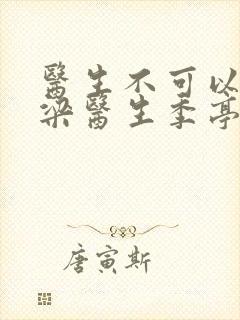 醫生不可以
梁醫生季亭
唐寅斯